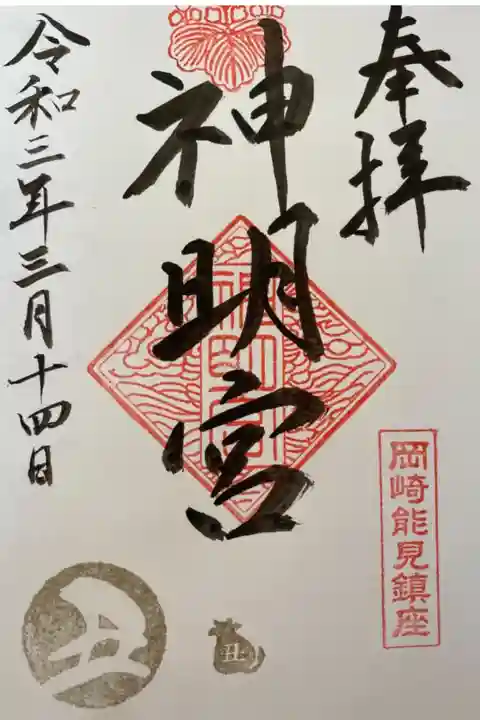 奉拝
岡崎能見鎮座
神明宮
神明宮
丑
令和三年三月十四日
丑